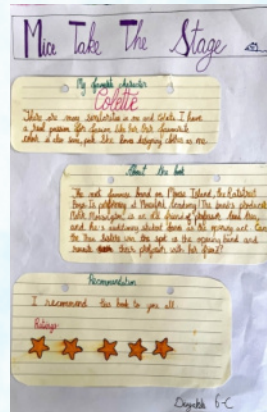 Mice Take The Stage
My favourite character
Colette
There are many similarities in me and Colette. I have
a real passion for  like her. Her favourite
color is also  pink. She loves designing clothes as me.
About the book
The most famous band on Mouse Island, the Ratstreet
Boys is performing at Mouseford Academy! The band's producer
Milk Mouseford is an old friend of professor
and he's auditioning student bands as the opening act. Can
the Thea Sisters win the spot as the opening band and
reunite their professor with his friend?
Recommendation
I recommend this book to you all.
Ratings:
6-C